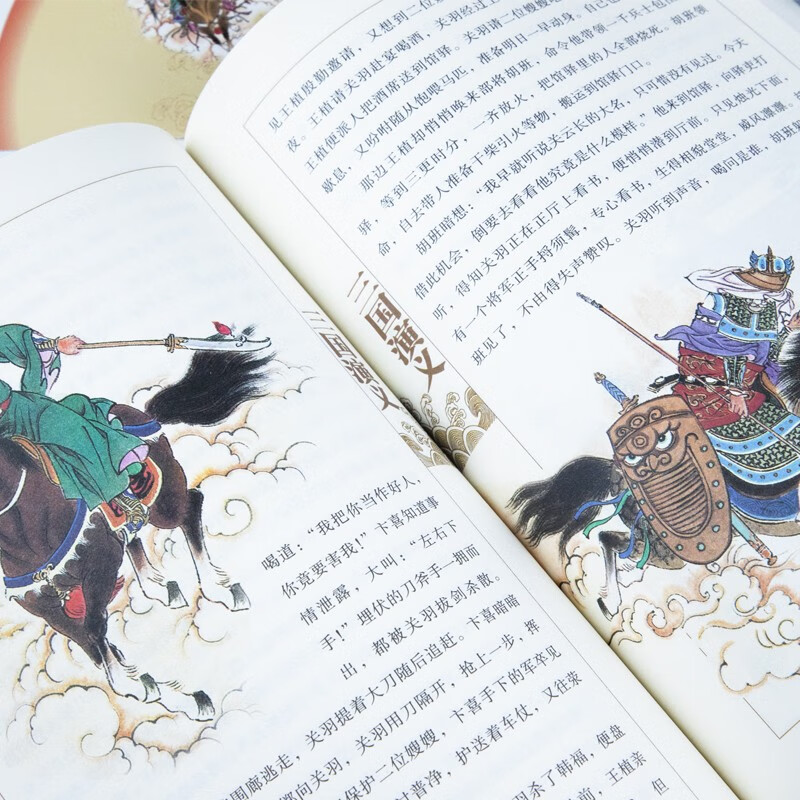 三国演义
喝道：“我把你当作好人，
你竟要害我！”卞喜知道事
情泄露，大叫：“左右下
手！”埋伏的刀斧手一拥而
出，都被关羽拔剑杀散。
围廊逃走，关羽提着大刀随后追赶。卞喜暗暗
掷向关羽，关羽用刀隔开，抢上一步，挥
保护二位嫂嫂，卞喜手下的军卒见
过普净，护送着车仗，又往荥
羽杀了韩福，便盘
前，王植亲
但
三国演义
见王植殷勤邀请，又想到二位
夜。王植请关羽赴宴喝酒，关羽请二位嫂嫂
王植便派人把酒席送到馆驿。
歇息，又吩咐随从饱喂马匹，准备明日一早动身。自己也
那边王植却悄悄唤来部将胡班，命令他带领一千兵士包
驿，等到三更时分，一齐放火，把馆驿里的人全部烧死。胡班领
命，自去带人准备干柴引火等物，搬运到馆驿门口。
胡班暗想：“我早就听说关云长的大名，只可惜没有见过。今天
借此机会，倒要去看看他究竟是什么模样。”他来到馆驿，向驿吏打
听，得知关羽正在正厅上看书，便悄悄潜到厅前。只见烛光下面，
有一个将军正手捋须髯，专心看书，生得相貌堂堂，威风凛凛。
班见了，不由得失声赞叹。关羽听到声音，喝问是谁，胡班